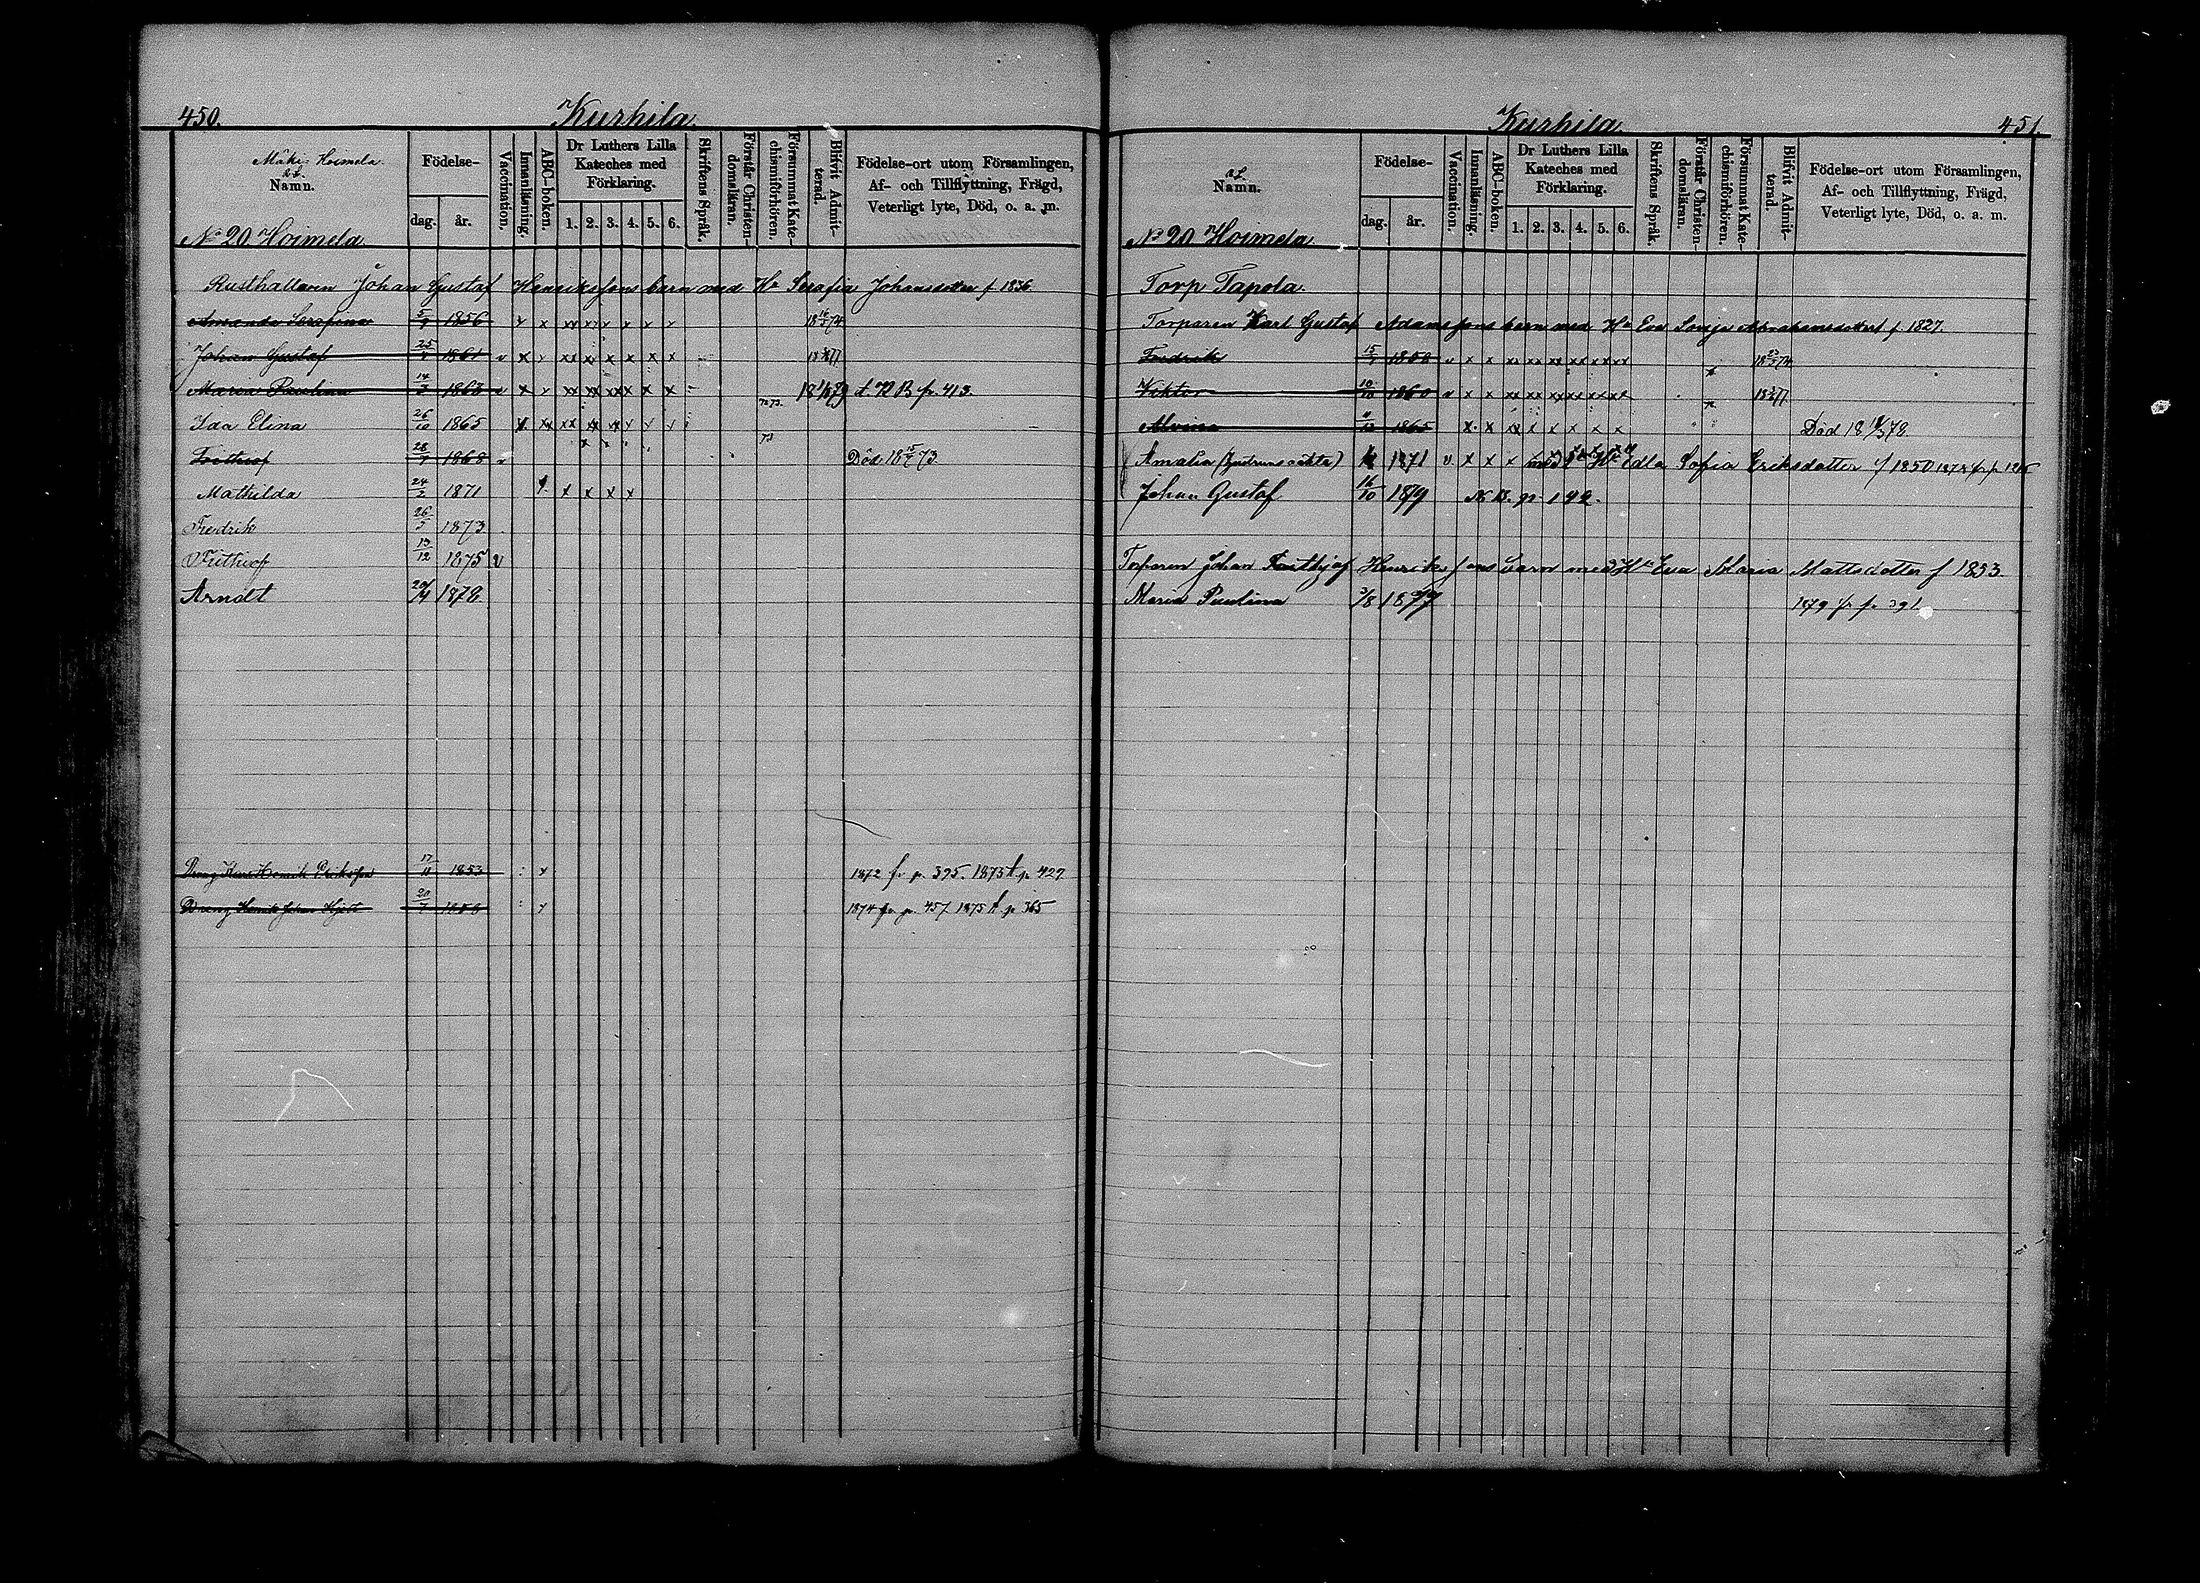 450.
Kurhila.
Mäki Hoimela
Namn.
Födelse-
dag. år.
Vaccination.
Innanläsning.
ABC-boken.
Dr Luthers Lilla Kateches med Förklaring.
1. 2. 3. 4. 5. 6.
Skriftens Språk.
Förstår Christen-domsläran.
Försummat Kate-chismiförhören.
Blifvit Admit-terad.
Födelse-ort utom Församlingen,
Af- och Tillflyttning, Frägd,
Veterligt lyte, Död, o. a. m.
No 20 Hoimela.
Rusthållaren Johan Gustaf Henrikssons barn med Ha Serafia Johansdotter f 1836
Amanda Serafina 1856 x x xx x x x x x
Johan Gustaf 25 1861 v x x xx x x x x x
Maria Paulina 14/3 1863 v x x xx xx xx x x x t. NB p. 413.
72 73.
Ida Elina 26/10 1865
73
Frithiof 28/7 1868 v Död 18 73
Mathilda 24/2 1871 x x x x
Fredrik 26/5 1873
Frithiof 13/12 1875 v
Arndt 20/4 1878
Dreng Henrik Eriksson 17/11 1853 x 1872 fr p. 395. 1873 t p. 427
Dreng Henrik Johan 20/7 1858 1874 fr p. 457 1875 t p 365
Kurhila.
451.
Namn.
Födelse-
dag. år.
Vaccination.
Innanläsning.
ABC-boken.
Dr Luthers Lilla Kateches med Förklaring.
1. 2. 3. 4. 5. 6.
Skriftens Språk.
Förstår Christen-domsläran.
Försummat Kate-chismiförhören.
Blifvit Admit-terad.
Födelse-ort utom Församlingen,
Af- och Tillflyttning, Frägd,
Veterligt lyte, Död, o. a. m.
No 20 Hoimela.
Torp Tapola.
Torparen Karl Gustaf Adamssons barn med Ha Eva Lovisa Abrahamsdotter f. 1827.
Fredrik 15 v x x xx xx xx xx xx xx
Viktor 10/10 1860 v x x xx xx xx xx xx
Alvina 1865 x x x x x x x x Död 18 78.
Amalia 1871 v. x x x med Edla Sofia Eriksdotter f 1850
Johan Gustaf 16/10 1879 NB. p. 142.
Torparen Johan Frithjof Henrikssons barn med Ha Eva Maria Mattsdotter f 1853.
Maria Paulina 3/8 1877 1879 fr p. 391.